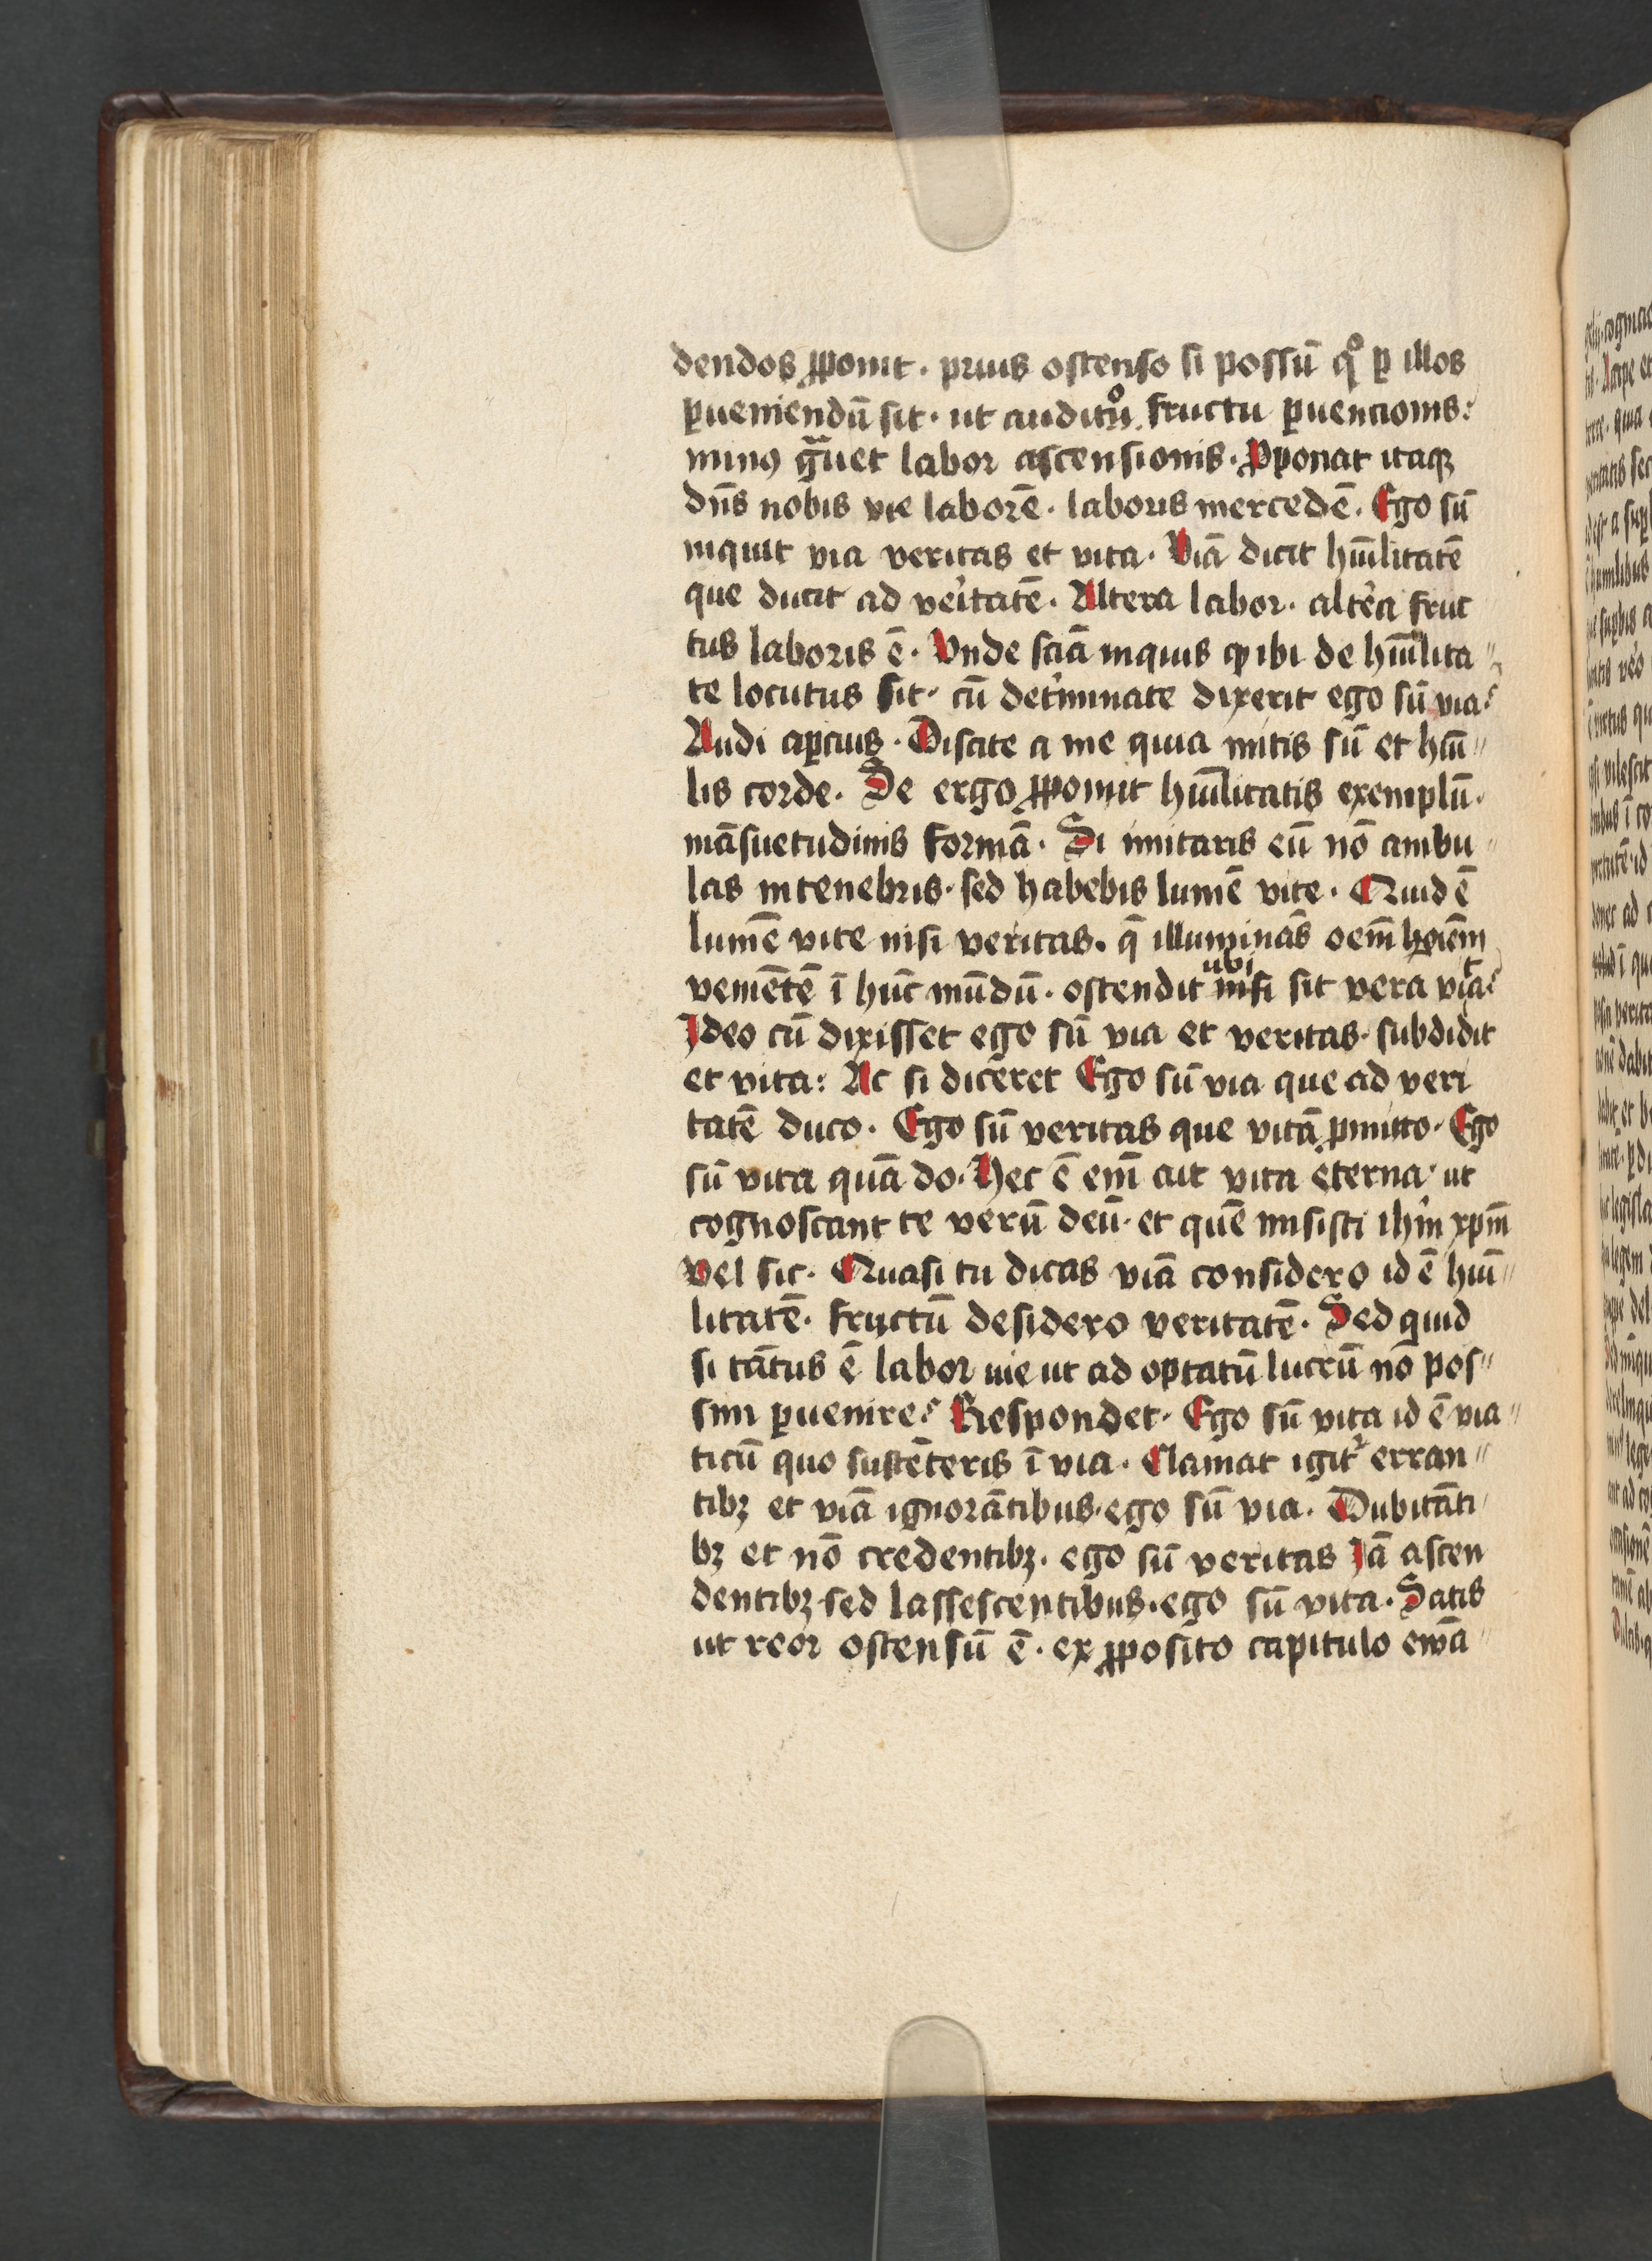 dendos ꝓponit · prius ostenso si possū qͦ ꝑ illos
ꝑueniendū sit · ut auditu fructu ꝑuencionis:
minꝰ gͣuet labor ascensionis · Ꝓponat itaqꝫ
dn̄s nobis vie laborē · laboris mercedē · Ego sū
inquit via veritas et vita · Viā dicit hūilitatē
que ducit ad veritatē · Altera labor · altera fruc
tus laboris ē · Vnde sciā inquis ꝙ ibi de hūilita〃
te locutus sit · cū det'minate dixerit ego sū via?
Audi aꝑcius · Discite a me quia mitis sū et hūi〃
lis corde · Se ergo ꝓponit hūilitatis exemplū ·
māsuetudinis formā · Si imitaris eū nō ambu〃
las in tenebris · sed habebis lumē vite · Quid ē
lumē vite nisi veritas · q̄ illuminās oēm hoiēm
veniētē ī hūc mūdū · ostendit ubi nisi sit vera vita?
Ideo cū dixisset ego sū via et veritas · subdidit
et vita: Ac si diceret Ego sū via que ad veri
tatē duco · Ego sū veritas que vitā ꝓmitto · Ego
sū vita quā do · Hec ē em̄ ait vita eterna · ut
cognoscant te verū deū · et quē misisti ihm̄ xpm̄
vel sic · Quasi tu dicas viā considero id ē hūi〃
litatē · fructū desidero veritatē · Sed quid
si tātus ē labor uie ut ad optatū lucrū nō pos〃
sim ꝑuenire? Respondet · Ego sū vita id ē via〃
ticū quo sustēteris ī via · Clamat igit᷑ erran〃
tibꝫ et viā ignorātibus · ego sū via · Dubitāti〃
bꝫ et nō credentibꝫ · ego sū veritas Iā ascen
dentibꝫ sed lassescentibus · ego sū vita · Satis
ut reor ostensū ē · ex ꝓposito capitulo ewā〃